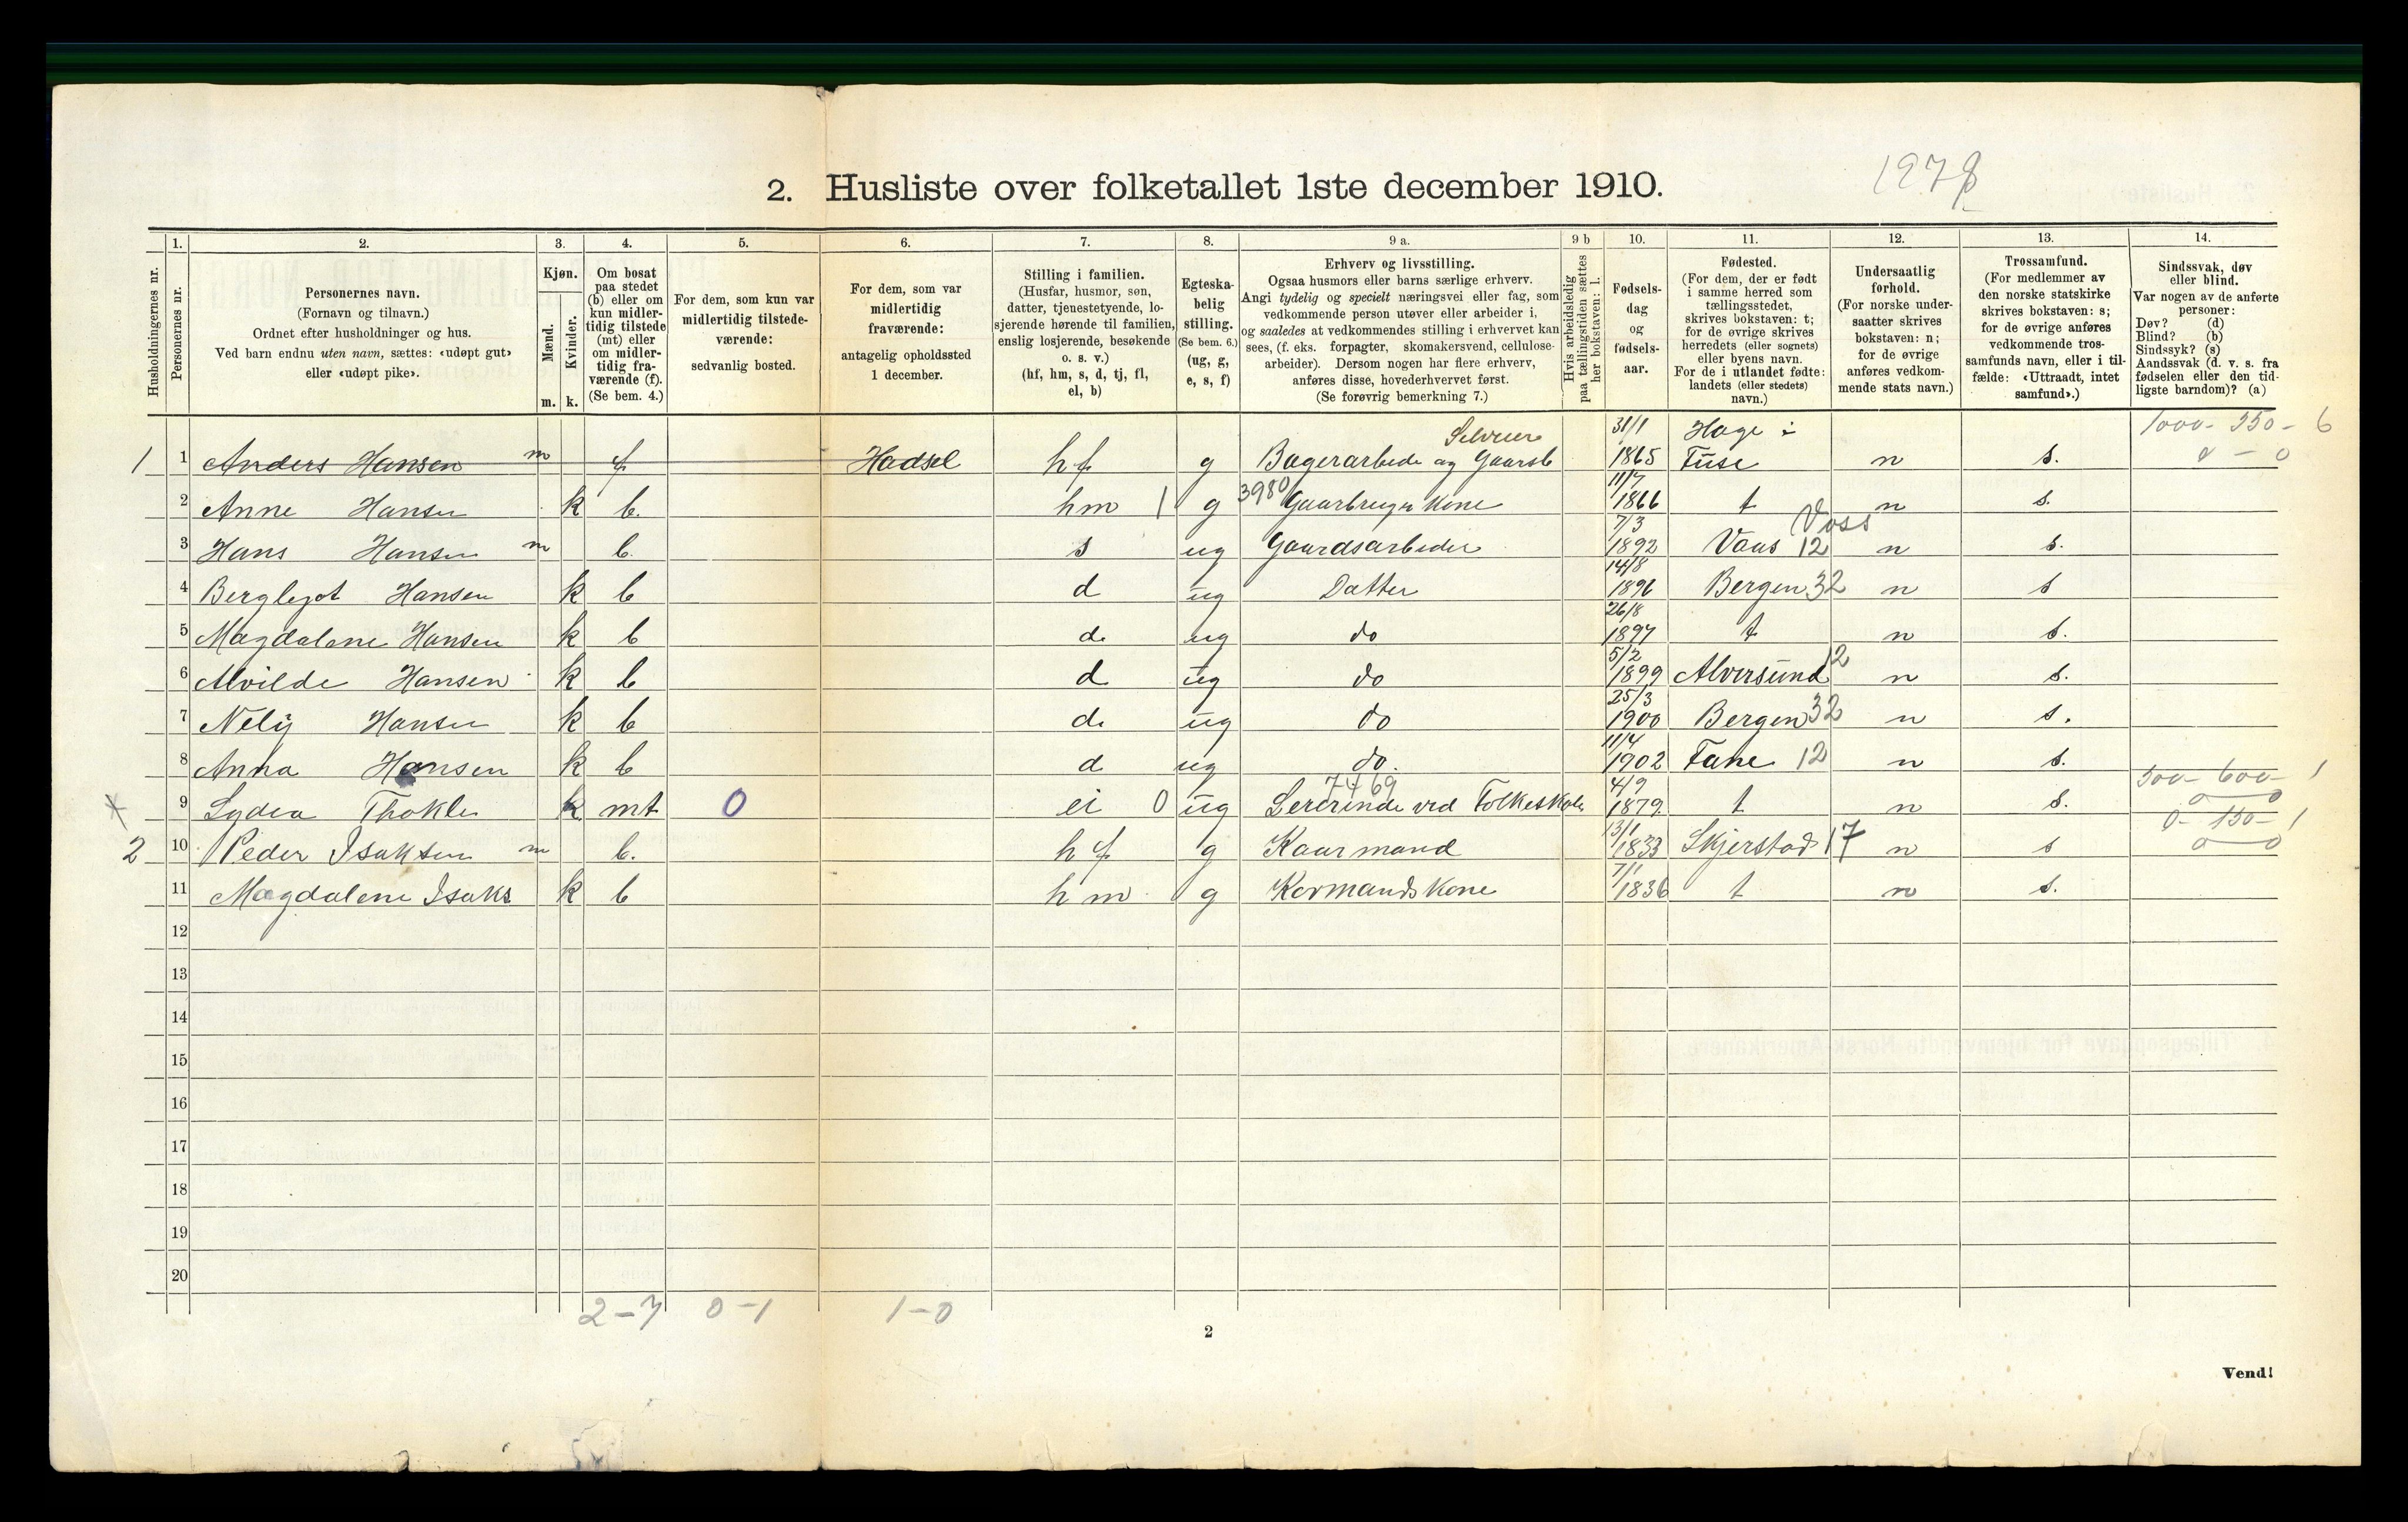 2. Husliste over folketallet 1ste december 1910.
1278
Husholdningernes nr.
1.
Personernes nr.
2.
Personernes navn.
(Fornavn og tilnavn.)
Ordnet efter husholdninger og hus.
Ved barn endnu uten navn, sættes: «udøpt gut»
eller «udøpt pike».
3.
Kjøn.
Mænd.
Kvinder.
m. k.
4.
Om bosat
paa stedet
(b) eller om
kun midler-
tidig tilstede
(mt) eller
om midler-
tidig fra-
værende (f).
(Se bem. 4.)
5.
For dem, som kun var
midlertidig tilstede-
værende:
sedvanlig bosted.
6.
For dem, som var
midlertidig
fraværende:
antagelig opholdssted
1 december.
7.
Stilling i familien.
(Husfar, husmor, søn,
datter, tjenestetyende, lo-
sjerende hørende til familien,
enslig losjerende, besøkende
o. s. v.)
(hf, hm, s, d, tj, fl,
el, b)
8.
Egteska-
belig
stilling.
(Se bem. 6.)
(ug, g,
e, s, f)
9 a.
Erhverv og livsstilling.
Ogsaa husmors eller barns særlige erhverv.
Angi tydelig og specielt næringsvei eller fag, som
vedkommende person utøver eller arbeider i,
og saaledes at vedkommendes stilling i erhvervet kan
sees, (f. eks. forpagter, skomakersvend, cellulose-
arbeider). Dersom nogen har flere erhverv,
anføres disse, hovederhvervet først.
(Se forøvrig bemerkning 7.)
9 b
Hvis arbeidsledig
paa tællingstiden sættes
her bokstaven: l.
10.
Fødsels-
dag
og
fødsels-
aar.
11.
Fødested.
(For dem, der er født
i samme herred som
tællingsstedet,
skrives bokstaven: t;
for de øvrige skrives
herredets (eller sognets)
eller byens navn.
For de i utlandet fødte:
landets (eller stedets)
navn.)
12.
Undersaatlig
forhold.
(For norske under-
saatter skrives
bokstaven: n;
for de øvrige
anføres vedkom-
mende stats navn.)
13.
Trossamfund.
(For medlemmer av
den norske statskirke
skrives bokstaven: s;
for de øvrige anføres
vedkommende tros-
samfunds navn, eller i til-
fælde: «Uttraadt, intet
samfund».)
14.
Sindssvak, døv
eller blind.
Var nogen av de anførte
personer:
Døv? (d)
Blind? (b)
Sindssyk? (s)
Aandssvak (d. v. s. fra
fødselen eller den tid-
ligste barndom)? (a)
1 1 Anders Hansen m f Hadsel hf g Bagerarbede og Gaarsb Selveier 31/1 1865 Hage i Fuse n s. 1000- 350- 6
2 Anne Hansen k b. hm 1 g 3980 Gaarbruger Kone 11/7 1866 t n s.
3 Hans Hansen m b. s ug Gaardsarbeder 7/3 1892 Vaas Voss 12 n s.
4 Berglejot Hansen k b d ug Datter 14/8 1896 Bergen 32 n s
5 Magdalene Hansen k b d. ug do 26/8 1897 t n s.
6 Alvilde Hansen k b d ug do 5/2 1899 Alversund 12 n s.
7 Nely Hansen k b d. ug do 25/3 1900 Bergen 32 n s.
8 Anna Hansen k b d ug do. 11/4 1902 Fane 12 n s.
9 Lydea Thokle k mt 0 ei 0 ug Lererinde ved Folkeskole 7469 4/9 1879 t n s. 500- 600- 1
2 10 Peder Isaksen m b. hf g Kaarmand 13/1 1833 Skjerstad 17 n s 0- 150- 1
11 Magdalene Isaks k b hm g Kormands Kone 7/1 1836 t n s.
12
13
14
15
16
17
18
19
20
2-7 0-1 1-0
2
Vend!